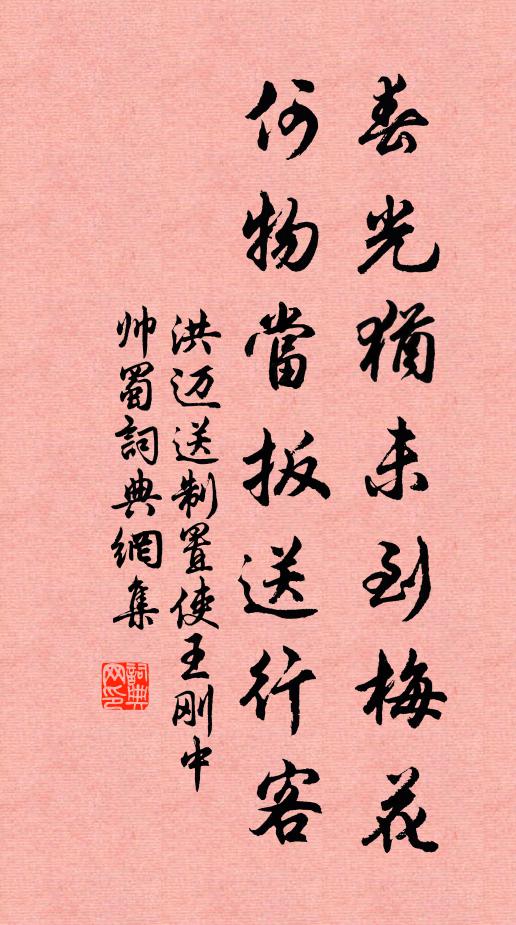 春光猶未到梅花
何物當扳送行客
洪迈送制置使王刚中
帅蜀詞典網集
詞典网印